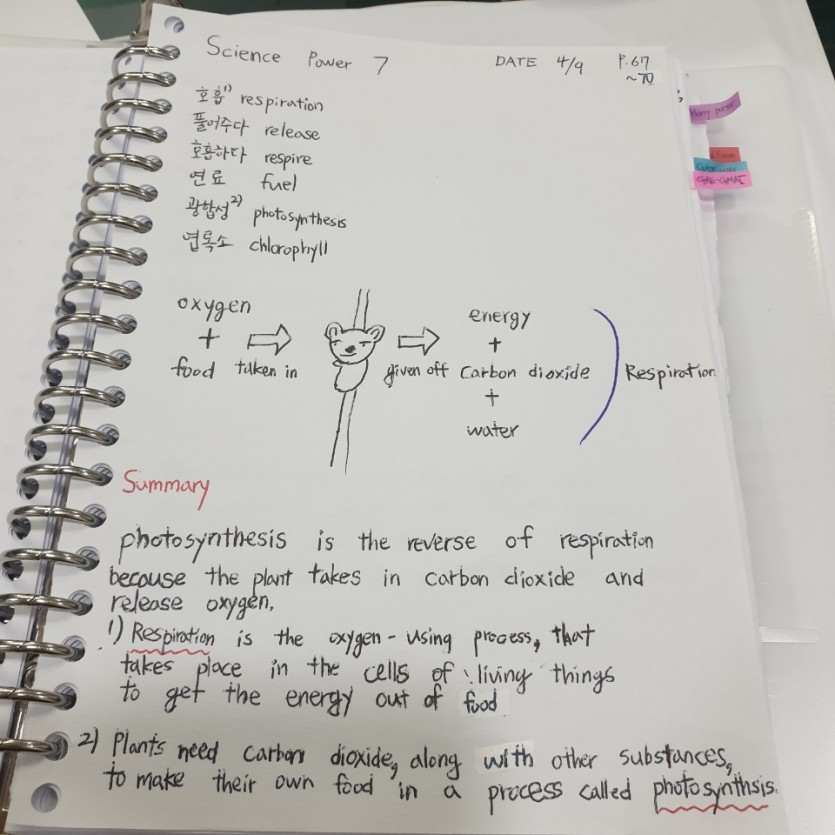 Science Power 7 DATE 4/9 P.67
~70
호흡1) respiration
풀어주다 release
호흡하다 respire
연료 fuel
광합성2) photosynthesis
엽록소 chlorophyll
oxygen
+
food taken in
given off
energy
+
carbon dioxide
+
water
Respiration
Summary
photosynthesis is the reverse of respiration
because the plant takes in carbon dioxide and
release oxygen.
1) Respiration is the oxygen-using process, that
takes place in the cells of living things
to get the energy out of food
2) Plants need carbon dioxide, along with other substances,
to make their own food in a process called photosynthsis.